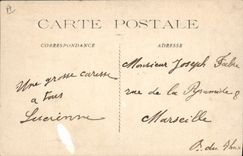 CARTE POSTALE
CORRESPONDANCE
ADRESSE
Monsieur Joseph Fabre
rue de la Pyramide 8
Marseille
B. du Rhône
Une grosse caresse
à tous
Lucienne